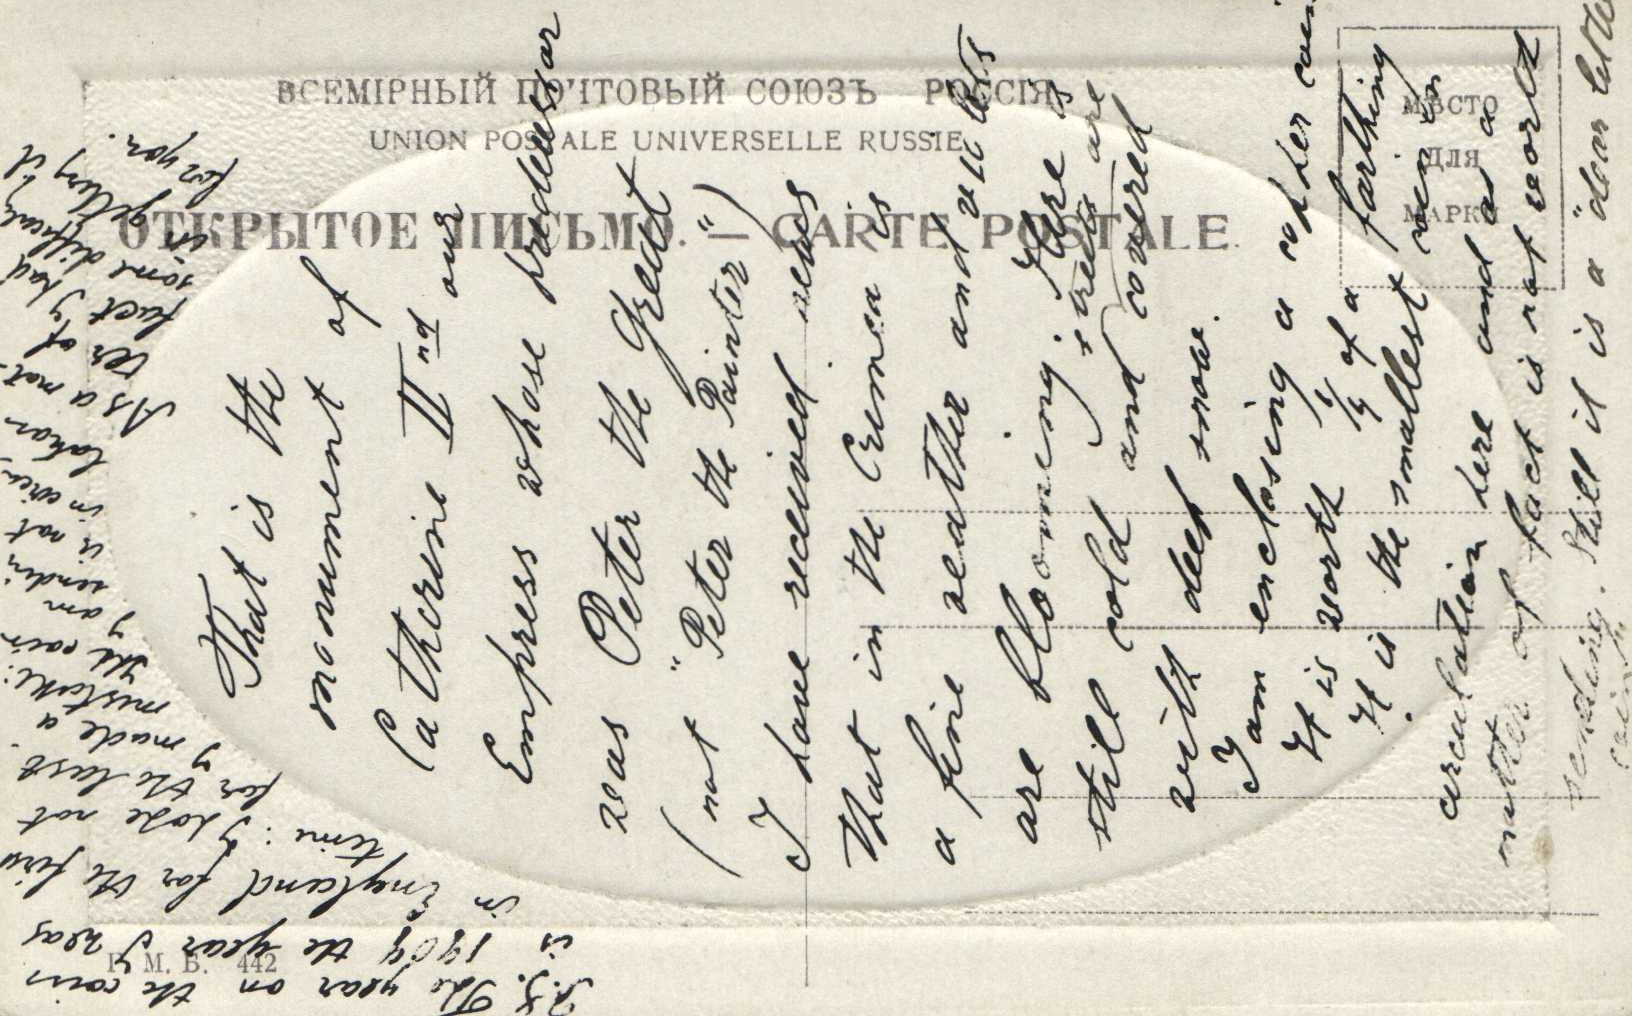 ВСЕМІРНЫЙ ПОЧТОВЫЙ СОЮЗЪ РОССІЯ
UNION POSTALE UNIVERSELLE RUSSIE
ОТКРЫТОЕ ПИСЬМО. — CARTE POSTALE.
МѢСТО
ДЛЯ
МАРКИ
Г. М. Б. 442
That is the
monument of
Catherine IInd our
Empress whose predecessor
was Peter the Great
(not "Peter the Painter")
I have received news
that in the Crimea is
a fine weather and
are blooming. Here is
still cold and streets are
covered
with deep snow.
I am enclosing a copper coin
It is worth 1/4 of a farthing
It is the smallest coin in
circulation here and as a
matter of fact is not worth
sending. Still it is a "dear little
coin".
P.S. The year on the coin
is 1909 the year I was
in England for the first
time: I hope not
for the last.
I made a
mistake:
the coin
I am
sending
is not
in circu-
lation
As a mat-
ter of
fact I had
some difficulty
in getting it
for you.